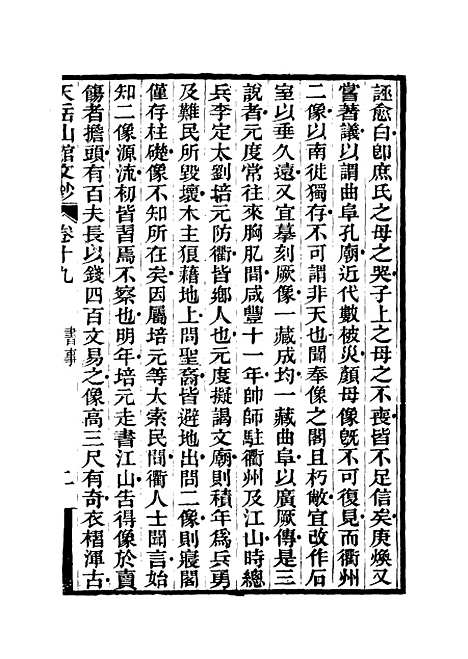 誣愈白卽庶氏之母之哭子上之母之不喪皆不足信矣庚煥又
嘗著議以謂曲阜孔廟近代數被災顏母像旣不可復見而衢州
二像以南徙獨存不可謂非天也聞奉像之閣且朽敝宜改作石
室以垂久遠又宜摹刻厥像一藏成均一藏曲阜以廣厥傳是三
說者元度常往來胸肊間咸豐十一年帥師駐衢州及江山時總
兵李定太劉培元防衢皆鄉人也元度擬謁文廟則積年爲兵勇
及難民所毀壞木主狼藉地上問聖裔皆避地出問二像則寢閣
僅存柱礎像不知所在矣因屬培元等大索民間衢人士聞言始
知二像源流初皆習焉不察也明年培元走書江山告得像於賣
傷者擔頭有百夫長以錢四百文易之像高三尺有奇衣褶渾古
天岳山館文鈔
卷十九
書事
二